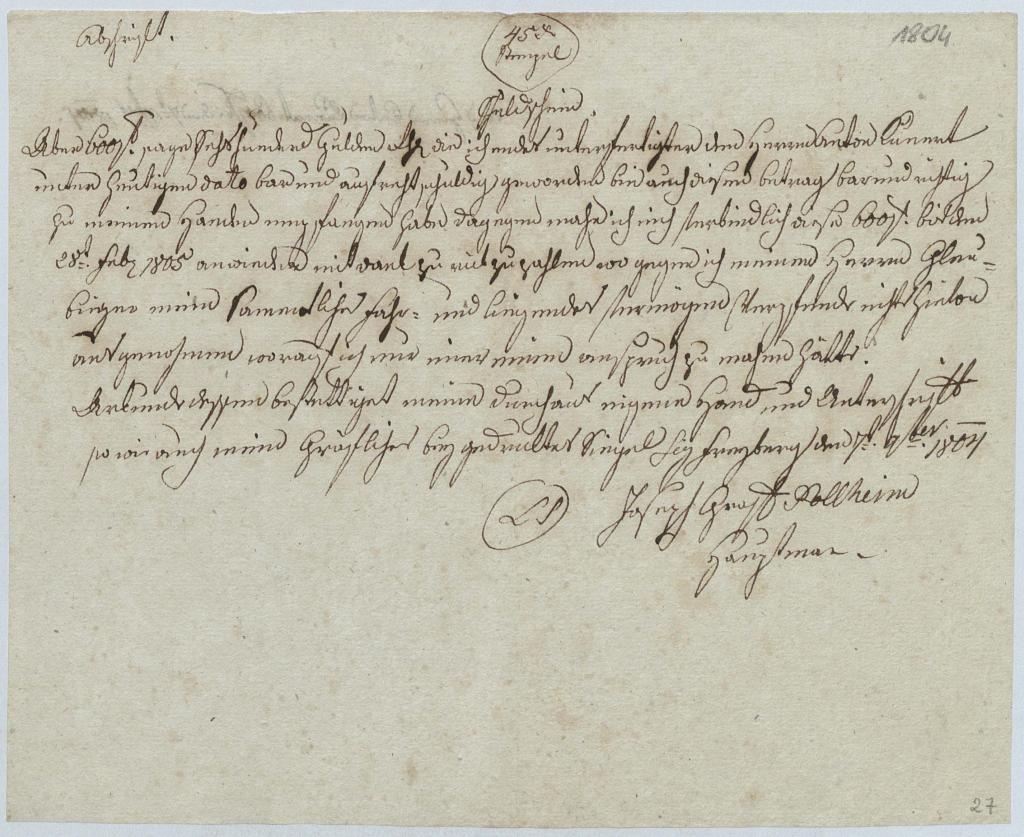 Abschrift.
45 x
Stempel
1804
Schuldschein.
Über 600 f. sage Sechshundert Gulden die ich endes unterfertigter dem Herrn Anton Kunert
unter heutigen dato bar und aufrecht schuldig geworden bin auch diesen betrag bar und richtig
zu meinen Handen empfangen habe dagegen mache ich mich verbindlich diese 600 f. bis den
28t. Feb 1805 anwiederum mit dank zuruk zu zahlen wo gegen ich meinen Herrn Glau-
biger mein sammentliches Fahr- und liegendes Vermögen verpfände nichts hievon
ausgenohmen worauf ich nur immer einen anspruch zu machen hätte.
Urkunde dessen bestättiget meine durchaus eigene Hand und Unterschrift
so wie auch mein Gräfliches bey gedrucktes Siegel Sig Freyberg den 1t. 7ber 1804
LS
Joseph Graf Sollheim
Hauptman
27